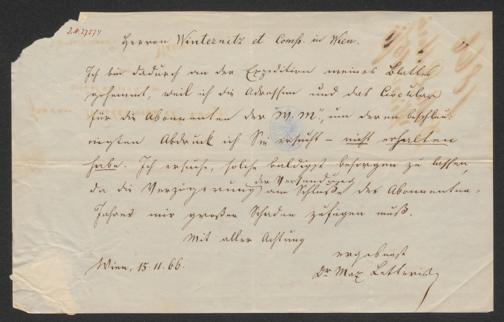 I.N. 27574
Herren Winternitz et Comp. in Wien.
Ich bin dadurch an der Expedition meines Blattes
gehemmt, weil ich die Adressen und das Circular
für die Abonenten der „W. M.", um deren beschleu-
nigsten Abdruck ich Sie ersucht – nicht erhalten
habe. Ich ersuche, solche baldigst besorgen zu lassen,
da die Verzögerung der Versendung am Schluße des Abonenten-
Jahres mir großen Schaden zufügen muß.
Mit aller Achtung
ergebenst
Wien, 15.11.66.
Dr Max Letteris